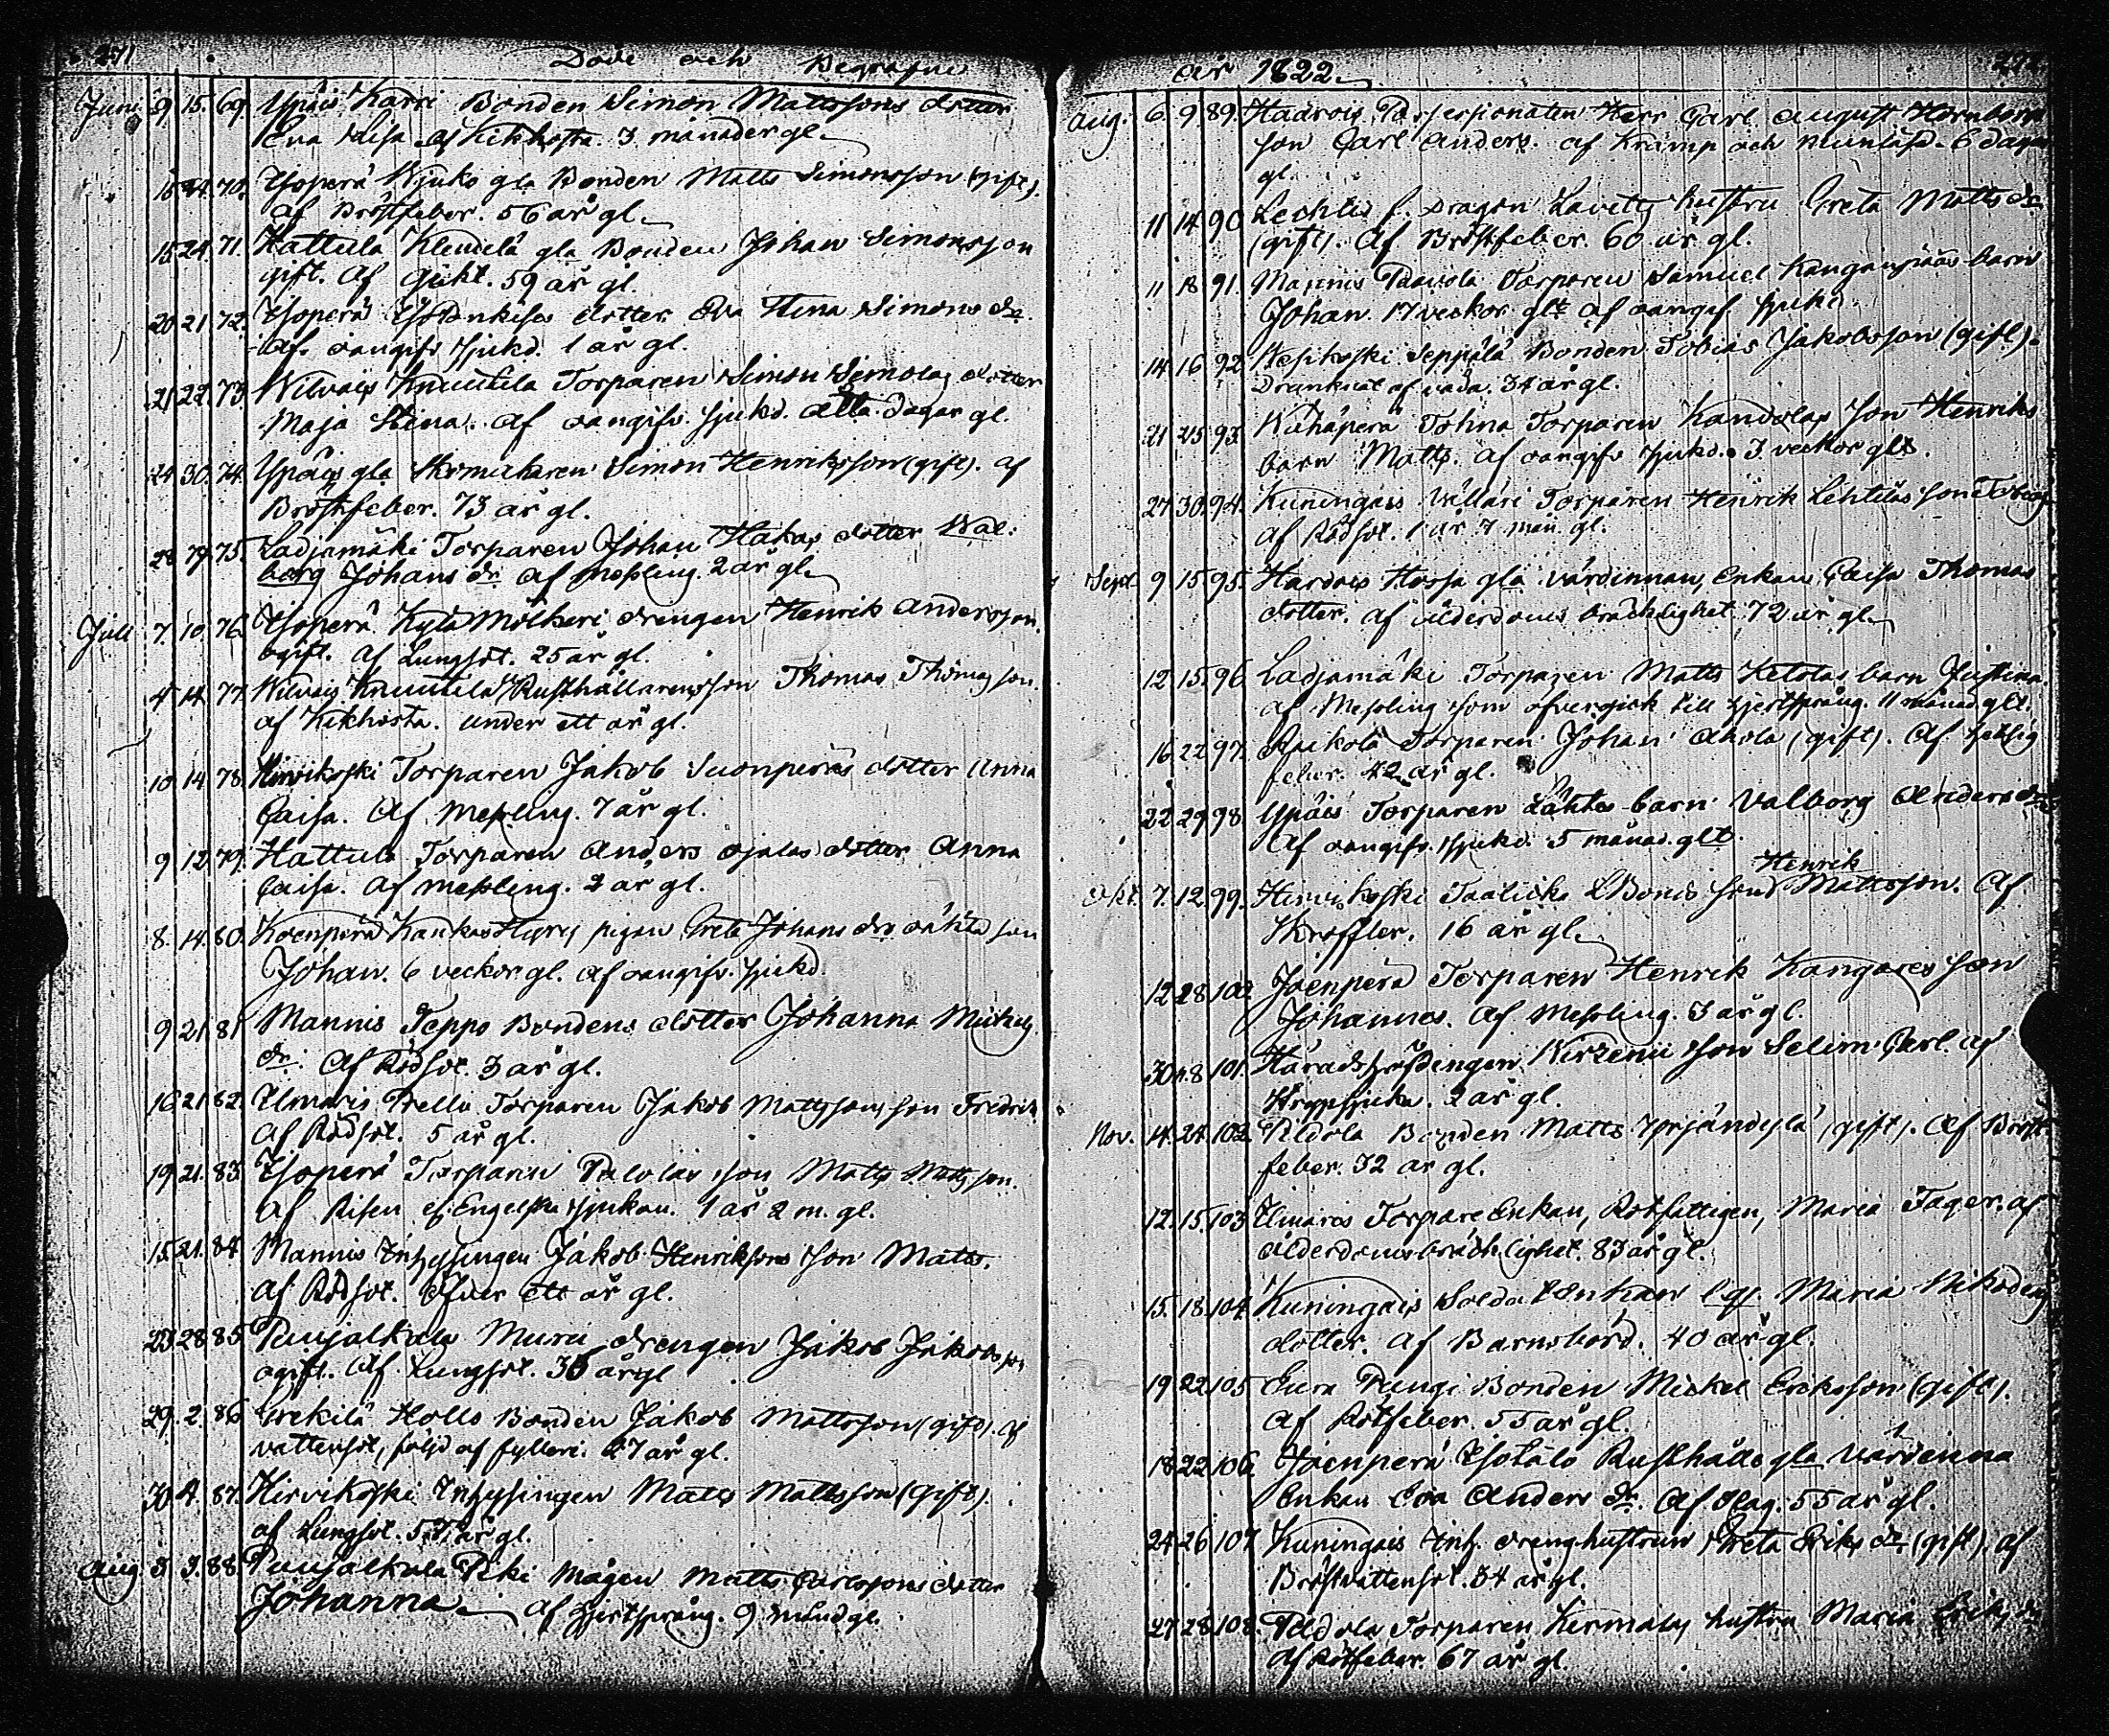 271
Döde och Begrafne
Juni 9 15. 69. Ypäis Karri Bonden Simon Mattssons dotter
Eva Lisa af Kikhosta. 3 månader gl.
15 24. 70. Ysoperä Kjuko gla Bonden Matts Simonsson (gift).
af Bröstfeber. 56 år gl.
15 24. 71. Hattula Klemelä gla Bonden Johan Simonsson
gift. Af Gikt. 59 år gl.
20 21 72. Ysoperä dotter Eva Stina Simons dr.
af oangifv sjukd. 1 år gl.
21 22. 73. Wilvais Knuutila Torparen Simon Simolas dotter
Maja Stina. af oangifv. sjukd. åtta dagar gl.
24 30. 74. Ypäis gla Skomakaren Simon Henriksson (gift). af
Bröstfeber. 73 år gl.
28 75. Ladjamäki Torparen Johan Hakas dotter Wal:
borg Johans dr. af Messling 2 år gl.
Juli 7. 10. 76. Ysoperä Kylä Mölkeri drengen Henrik Andersson.
ogift. af Lungsot. 25 år gl.
4 14. 77. Wilvais Knuutila Rusthållarens son Thomas Thomasson.
af Kikhosta. under ett år gl.
10 14 78. Hirvikoski Torparen Jakob Suonperäs dotter Anna
Caisa. Af Messling. 7 år gl.
9 12. 79. Hattula Torparen Anders Ojalas dotter Anna
Caisa. Af Messling. 2 år gl.
8. 14. 80. Koenperä Kankas Hyrys pigan Greta Johans drs oäkta son
Johan. 6 veckor gl. af oangifv. sjukd.
9 21. 81 Mannis Seppo Bondens dotter Johanna Mickels
dr. Af Rödsot. 3 år gl.
16 21. 82. Ilmaris Prellu Torparen Jakob Mattssons son Fredrik
Af Rödsot. 5 år gl.
19 21. 83. Ysoperä Torparen Palolas son Matts Mattsson.
Af Risen el. Engelska sjukan. 1 år 2 m. gl.
15 21. 84. Mannis Inhysingen Jakob Henrikssons son Matts.
Af Rödsot. Öfver ett år gl.
23 28 85. Puujalkala Muru drengen Jakob Jakobsson
ogift. Af Lungsot. 36 år gl
29. 2. 86 Hollo Bonden Jakob Mattsson (gift). af
vattensot, följd af fylleri. 47 år gl.
30 4. 87. Hirvikoski Inhysingen Matts Mattsson (gift)
af Lungsot. år gl.
Aug. 3 9. 88. Puujalkala Piki mågen Matts Carlssons dotter
Johanna. af Hjertsprång. 9 månd gl.
år 1822.
272
Aug. 6. 9. 89. Hadvois Possessionaten Herr Carl August Hornborgs
son Carl Anders. af Kramp och Munlåsd. 6 dagar
gl.
11 14 90 Lechtis f. Dragon Lavitz hustru Greta Matts dr
(gift). af Bröstfeber. 60 år gl.
11 18 91. Mannis Paavola Torparen Samuel Kangaspääs barn
Johan. 17 veckor glt af oangif sjukd.
14 16 92. Wesikoski Seppälä Bonden Tobias Jakobsson (gift).
Drunknat af våda. 34 år gl.
21 25 93. Torparen son Henriks
barn Matts. af oangifv sjukd. 3 veckor glt.
27 30. 94. Kuningais Wälläri Torparen Henrik Lehtiläs son Tobias
af Rödsot. 1 år 7 mån gl.
Sept. 9 15 95. Hardois Horja gla värdinnan, Enkan Caisa Thomas
dotter. af ålderdoms bräcklighet 72 år gl.
12 15. 96 Ladjamäki Torparen Matts Ketolas barn Justina.
af Messling som öfvergick till Hjertsprång. 11 månad glt.
16. 22 97. Raikola Torparen Johan Ahola (gift). Af hetsig
feber. 42 år gl.
22 29 98 Ypäis Torparen Lähtes barn Valborg Anders dr
Af oangifv. sjukd. 5 månad. glt.
Henrik
Okt. 7. 12. 99. Hirvikoski Taalicka Bonds son Mattsson. Af
Skroffler. 16 år gl.
12 28 100. Joenperä Torparen Henrik Kangares son
Johannes. Af Messling. 3 år gl.
30 8 101. Häradshöfdingen Wirzenii son Selim Carl. af
Strypsjuka. 2 år gl.
Nov. 14. 24. 102. Peldola Bonden Matts Yrjändylä (gift). Af Bröst
feber. 32 år gl.
12. 15. 103 Ilmaros Torpare Enkan, Rotfattigen, Maria Tager. af
ålderdomsbräcklighet. 83 år gl.
15. 18. 104. Kuningais Soldat Enkan Maria Nikodemi
dotter. Af Barnsbörd. 40 år gl.
19 22 105. Eura Pungi Bonden Mickel Eriksson (gift).
af Rötfeber. 55 år gl.
18 22 106. Joenperä Isotalo Rusthålls gla värdinna
Enkan Eva Anders dr. Af Slag. 55 år gl.
24 26 107 Kuningais Inh. drenghustrun Greta Eriks dr (gift) af
Bröstvattensot. 34 år gl.
27 28 108. Peldola Torparen Kermalas hustru Maria Eriks dr
af Rötfeber. 67 år gl.